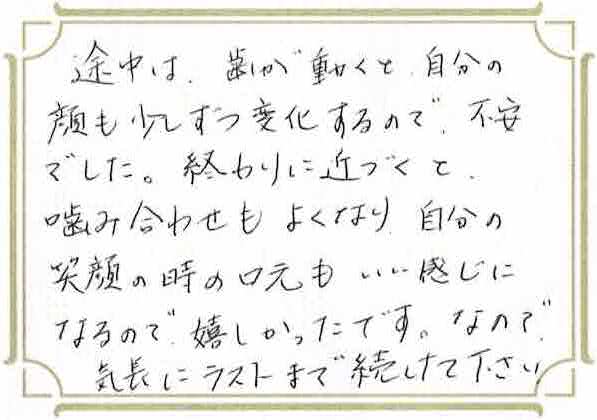 途中は、歯が動くと、自分の
顔も少しずつ変化するので、不安
でした。終わりに近づくと、
噛み合わせもよくなり、自分の
笑顔の時の口元もいい感じに
なるので、嬉しかったです。なので、
気長にラストまで続けて下さい